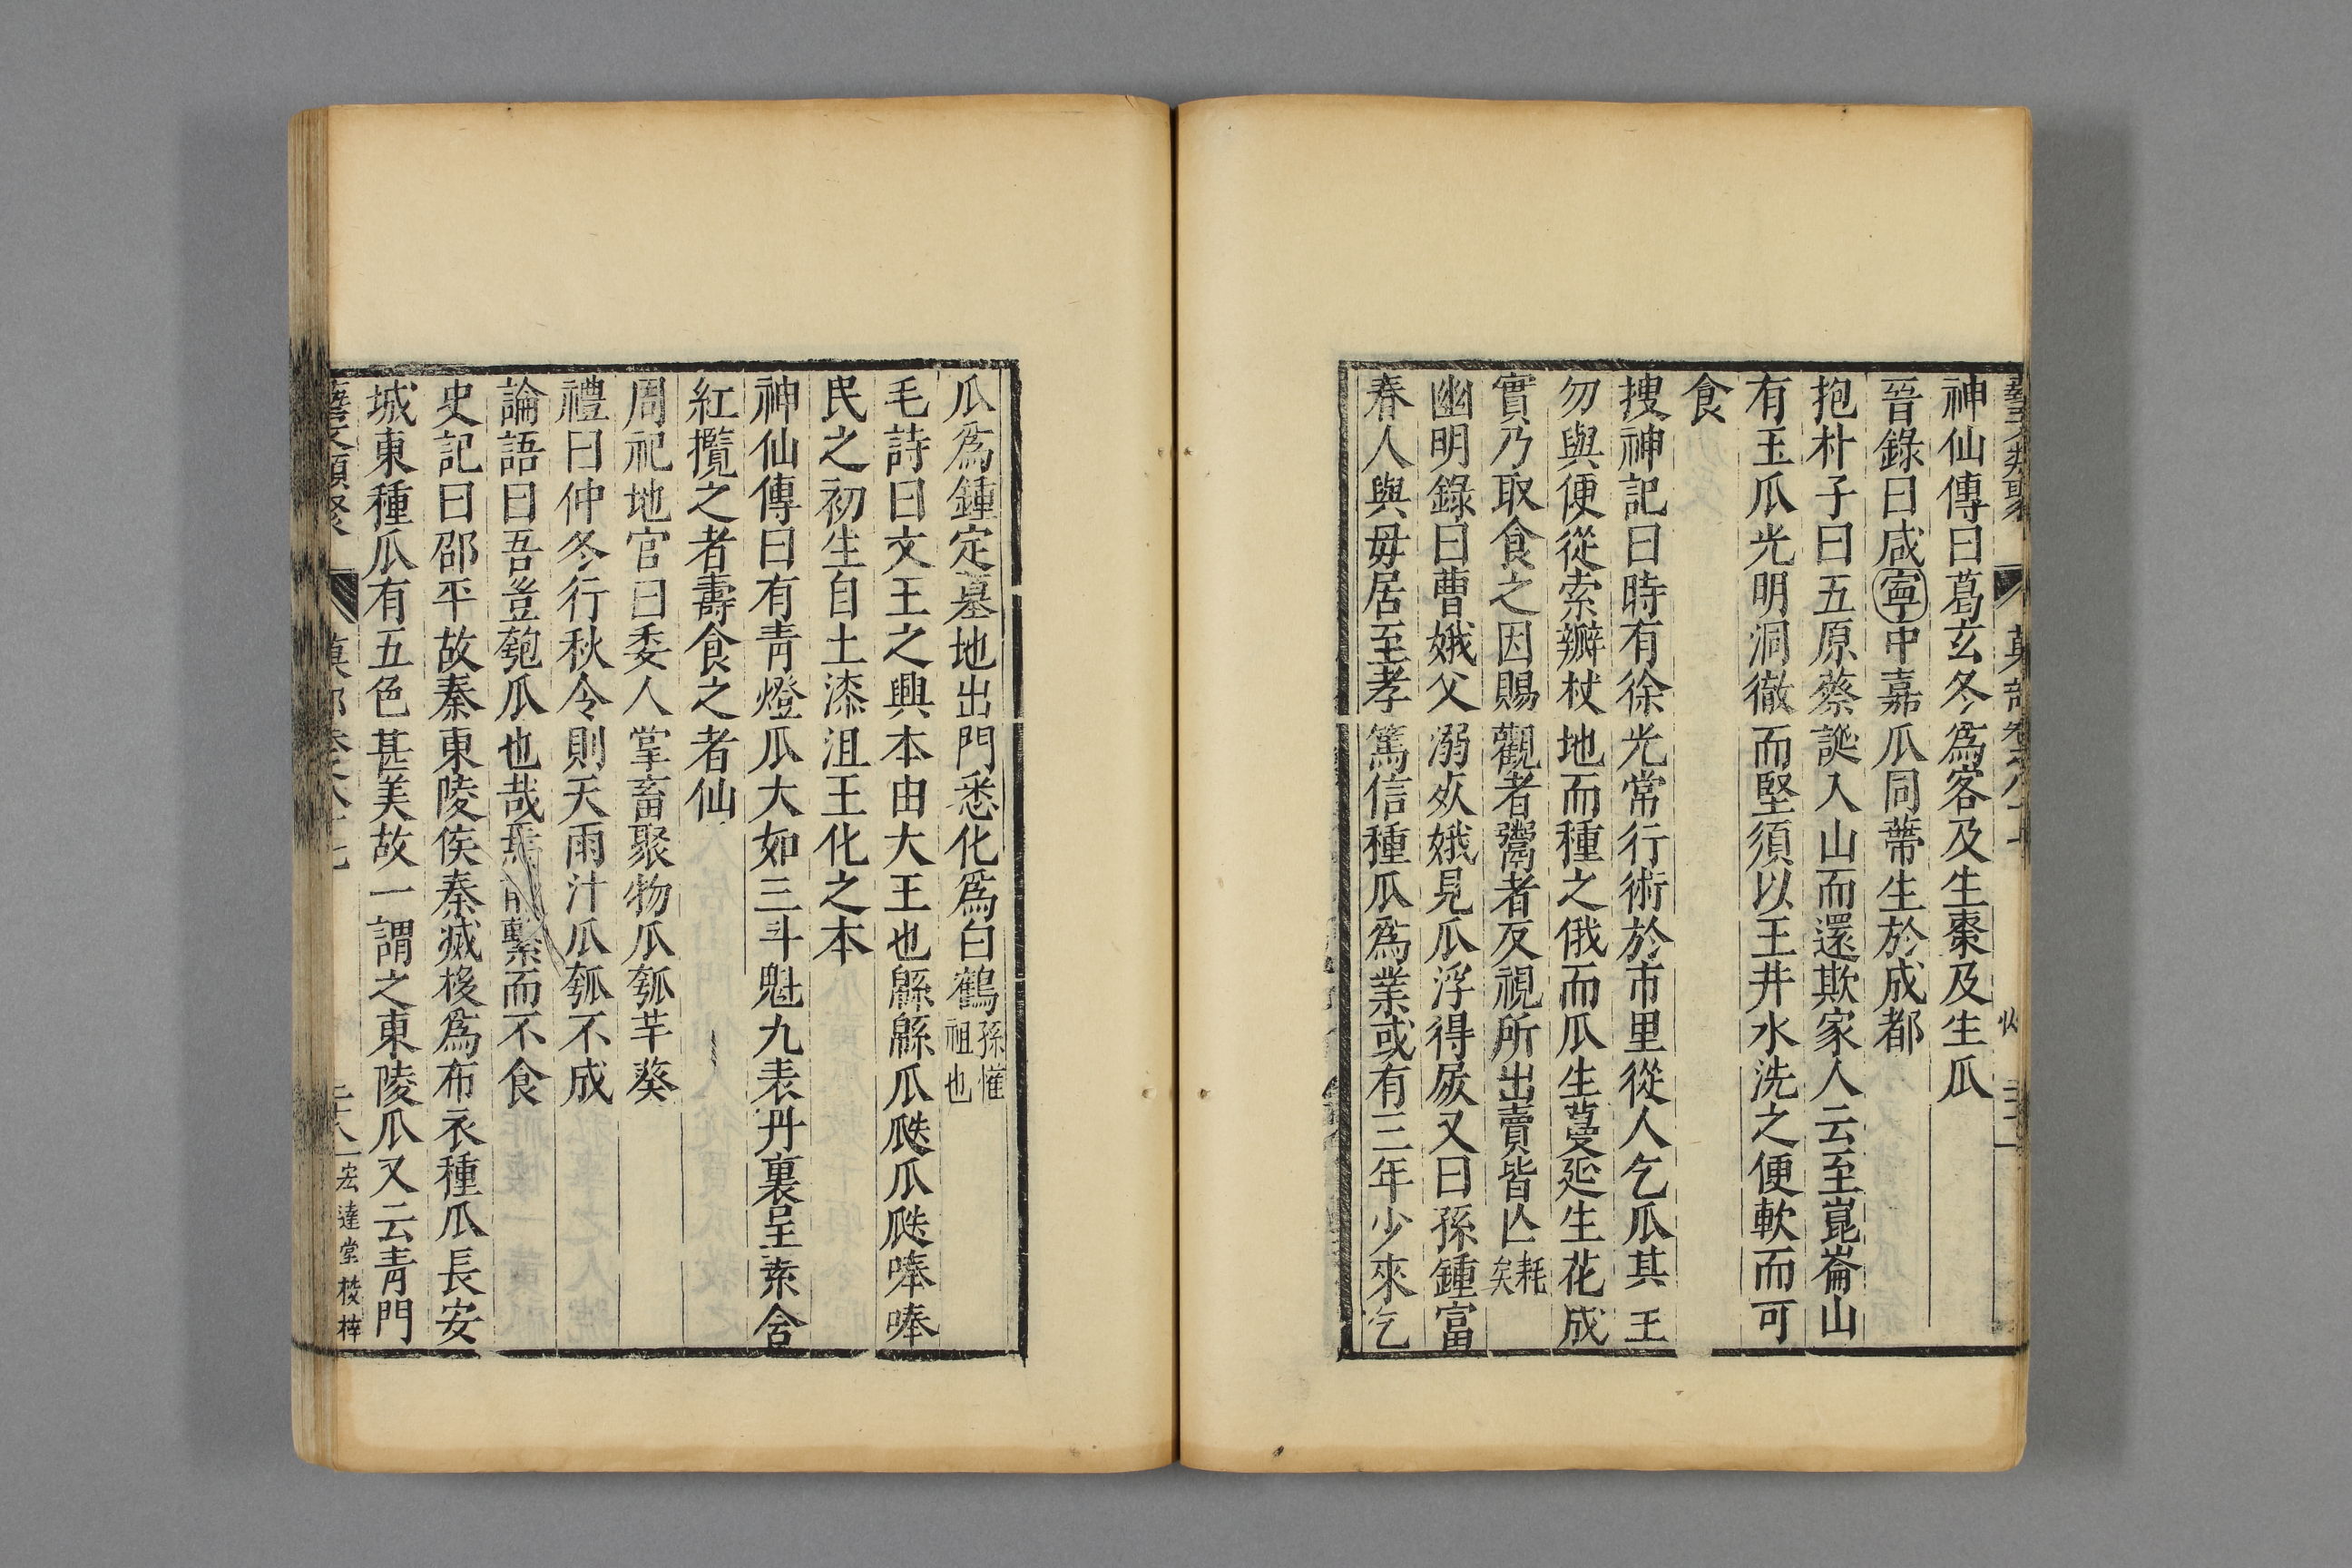 神仙傳曰葛玄冬爲客及生棗及生瓜
晉錄曰咸寧中嘉瓜同蔕生於成都
抱朴子曰五原蔡誕入山而還欺家人云至崑崙山
有玉瓜光明洞徹而堅須以玉井水洗之便軟而可
食
搜神記曰時有徐光常行術於市里從人乞瓜其王
勿與便從索瓣杖地而種之俄而瓜生蔓延生花成
實乃取食之因賜觀者鬻者反視所出賣皆亾耗矣
幽明錄曰曹娥父溺死娥見瓜浮得屍又曰孫鍾富
春人與母居至孝篤信種瓜爲業或有三年少來乞
瓜爲鍾定墓地出門悉化爲白鶴孫惟祖也
毛詩曰文王之興本由大王也緜緜瓜瓞瓜瓞唪唪
民之初生自土漆沮王化之本
神仙傳曰有靑燈瓜大如三斗魁九表丹裏呈素含
紅攬之者壽食之者仙
周祀地官曰委人掌畜聚物瓜瓠芋葵
禮曰仲冬行秋令則天雨汁瓜瓠不成
論語曰吾豈匏瓜也哉焉能繫而不食
史記曰邵平故秦東陵侯秦滅後爲布衣種瓜長安
城東種瓜有五色甚美故一謂之東陵瓜又云靑門